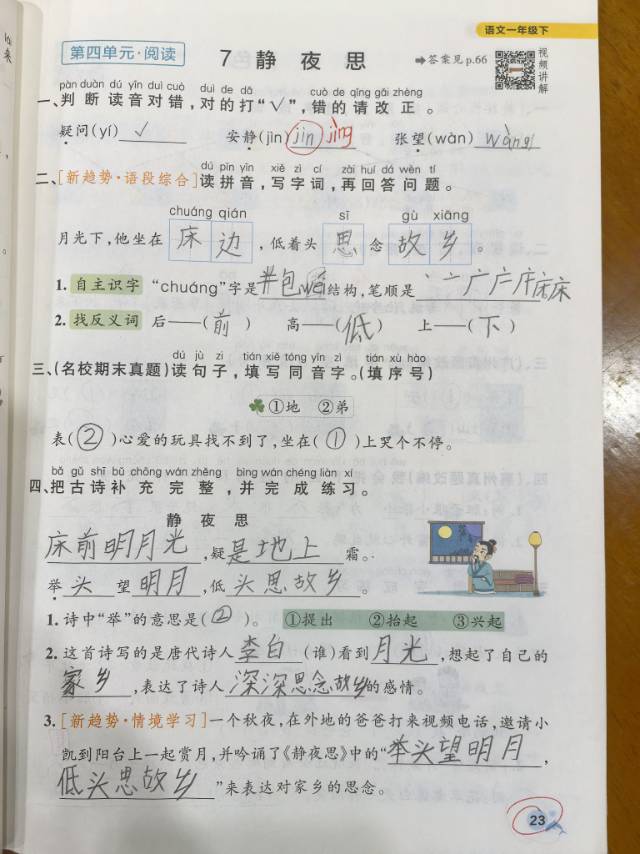 语文一年级下
第四单元·阅读
7 静 夜 思
➡答案见p.66
视频讲解
pàn duàn dú yīn duì cuò duì de dǎ cuò de qǐng gǎi zhèng
一、判断读音对错，对的打“√”，错的请改正。
疑问(yí) ✓ 安静(jìn) jin jìng 张望(wàn) wàng
dú pīn yīn xiě zì cí zài huí dá wèn tí
二、[新趋势·语段综合]读拼音，写字词，再回答问题。
chuáng qián sī gù xiāng
月光下，他坐在 床边 ，低着头 思 念 故乡 。
1. 自主识字 “chuáng”字是 半包 结构，笔顺是 丶 亠 广 庁 床 床
2. 找反义词 后——( 前 ) 高——( 低 ) 上——( 下 )
dú jù zi tián xiě tóng yīn zì tián xù hào
三、(名校期末真题)读句子，填写同音字。(填序号)
①地 ②弟
表( ② )心爱的玩具找不到了，坐在( ① )上哭个不停。
bǎ gǔ shī bǔ chōng wán zhěng bìng wán chéng liàn xí
四、把古诗补充完整，并完成练习。
静 夜 思
床前明月光 ，疑 是地上 霜。
举 头 望 明月 ，低 头思故乡 。
1. 诗中“举”的意思是( ② )。 ①提出 ②抬起 ③兴起
2. 这首诗写的是唐代诗人 李白 (谁)看到 月光 ，想起了自己的
家乡 ，表达了诗人 深深思念故乡 的感情。
3. [新趋势·情境学习]一个秋夜，在外地的爸爸打来视频电话，邀请小
凯到阳台上一起赏月，并吟诵了《静夜思》中的“ 举头望明月 ，
低头思故乡 ”来表达对家乡的思念。
23